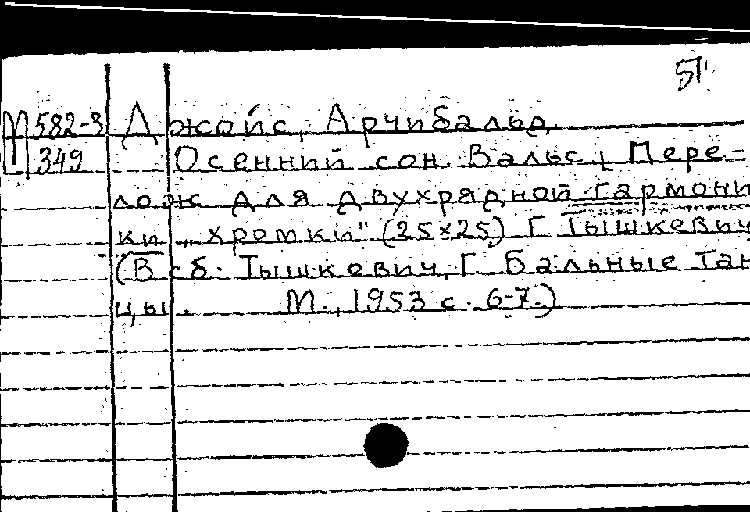 51
М 582-3 Джойс, Арчибальд
349 Осенний сон. Вальс. Пере-
лож для двухрядной гармони
ки „хромки" (25×25) Г Тышкевич
(В сб. Тышкович, Г. Бальные тан
цы. М., 1953 с. 6-7.)